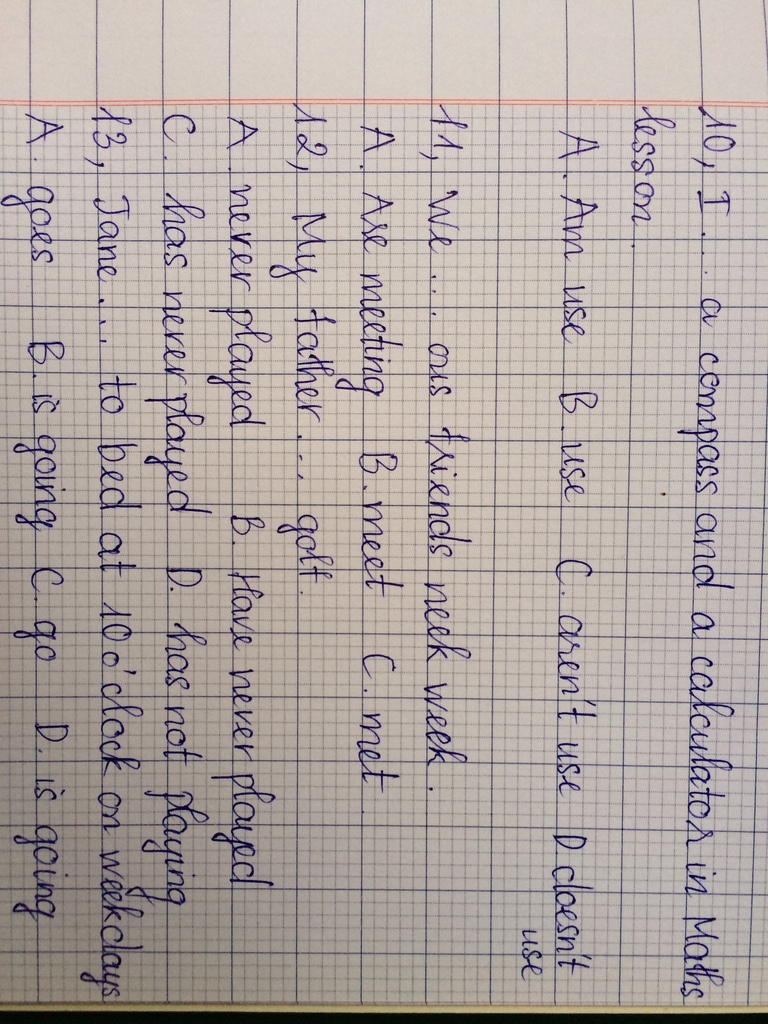 10, I ... a compass and a calculator in Maths
lesson.
A. Am use B. use C. aren't use D. doesn't
use
11, We ... ous friends neek week.
A. Are meeting B. meet C. met.
12, My father ... golf.
A. never played B. Have never played
C. has never played D. has not playing
13, Jane ... to bed at 10 o'clock on weekdays
A. goes B. is going C. go D. is going